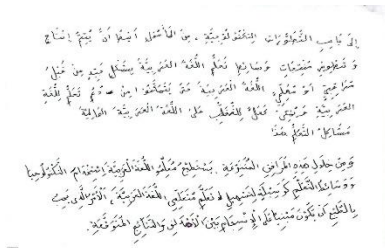 إلى جانب التطورات التكنولوجية، من المأمول أيضا أن يتم إنتاج
وتطوير منتجات وسائل تعلم اللغة العربية بشكل جيد من قبل
أو معلمي اللغة العربية حتى يتمكنوا من تعلم اللغة
العربية على اللغة العربية العالية
مشاكل التعلم هذا
ومن خلال هذه المتنوعة، يستطيع معلمو اللغة العربية استخدام التكنولوجيا
ووسائط التعلم كوسيلة لتسهيل تعلم متعلمي اللغة العربية، الأمر الذي يجب
بالطبع أن يكون متناسقا بين والنتائج المتوقعة.